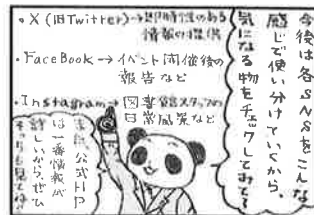 今後は各SNSをこんな
感じで使い分けていくから、
気になる物をチェックしてみて!
・X(旧Twitter)→即時性のある
情報の提供
・FaceBook→イベント開催後の
報告など
・Instagram→図書館スタッフの
日常風景など
公式HP
は一番情報が
詳しいから、ぜひ
そっちも見てね!